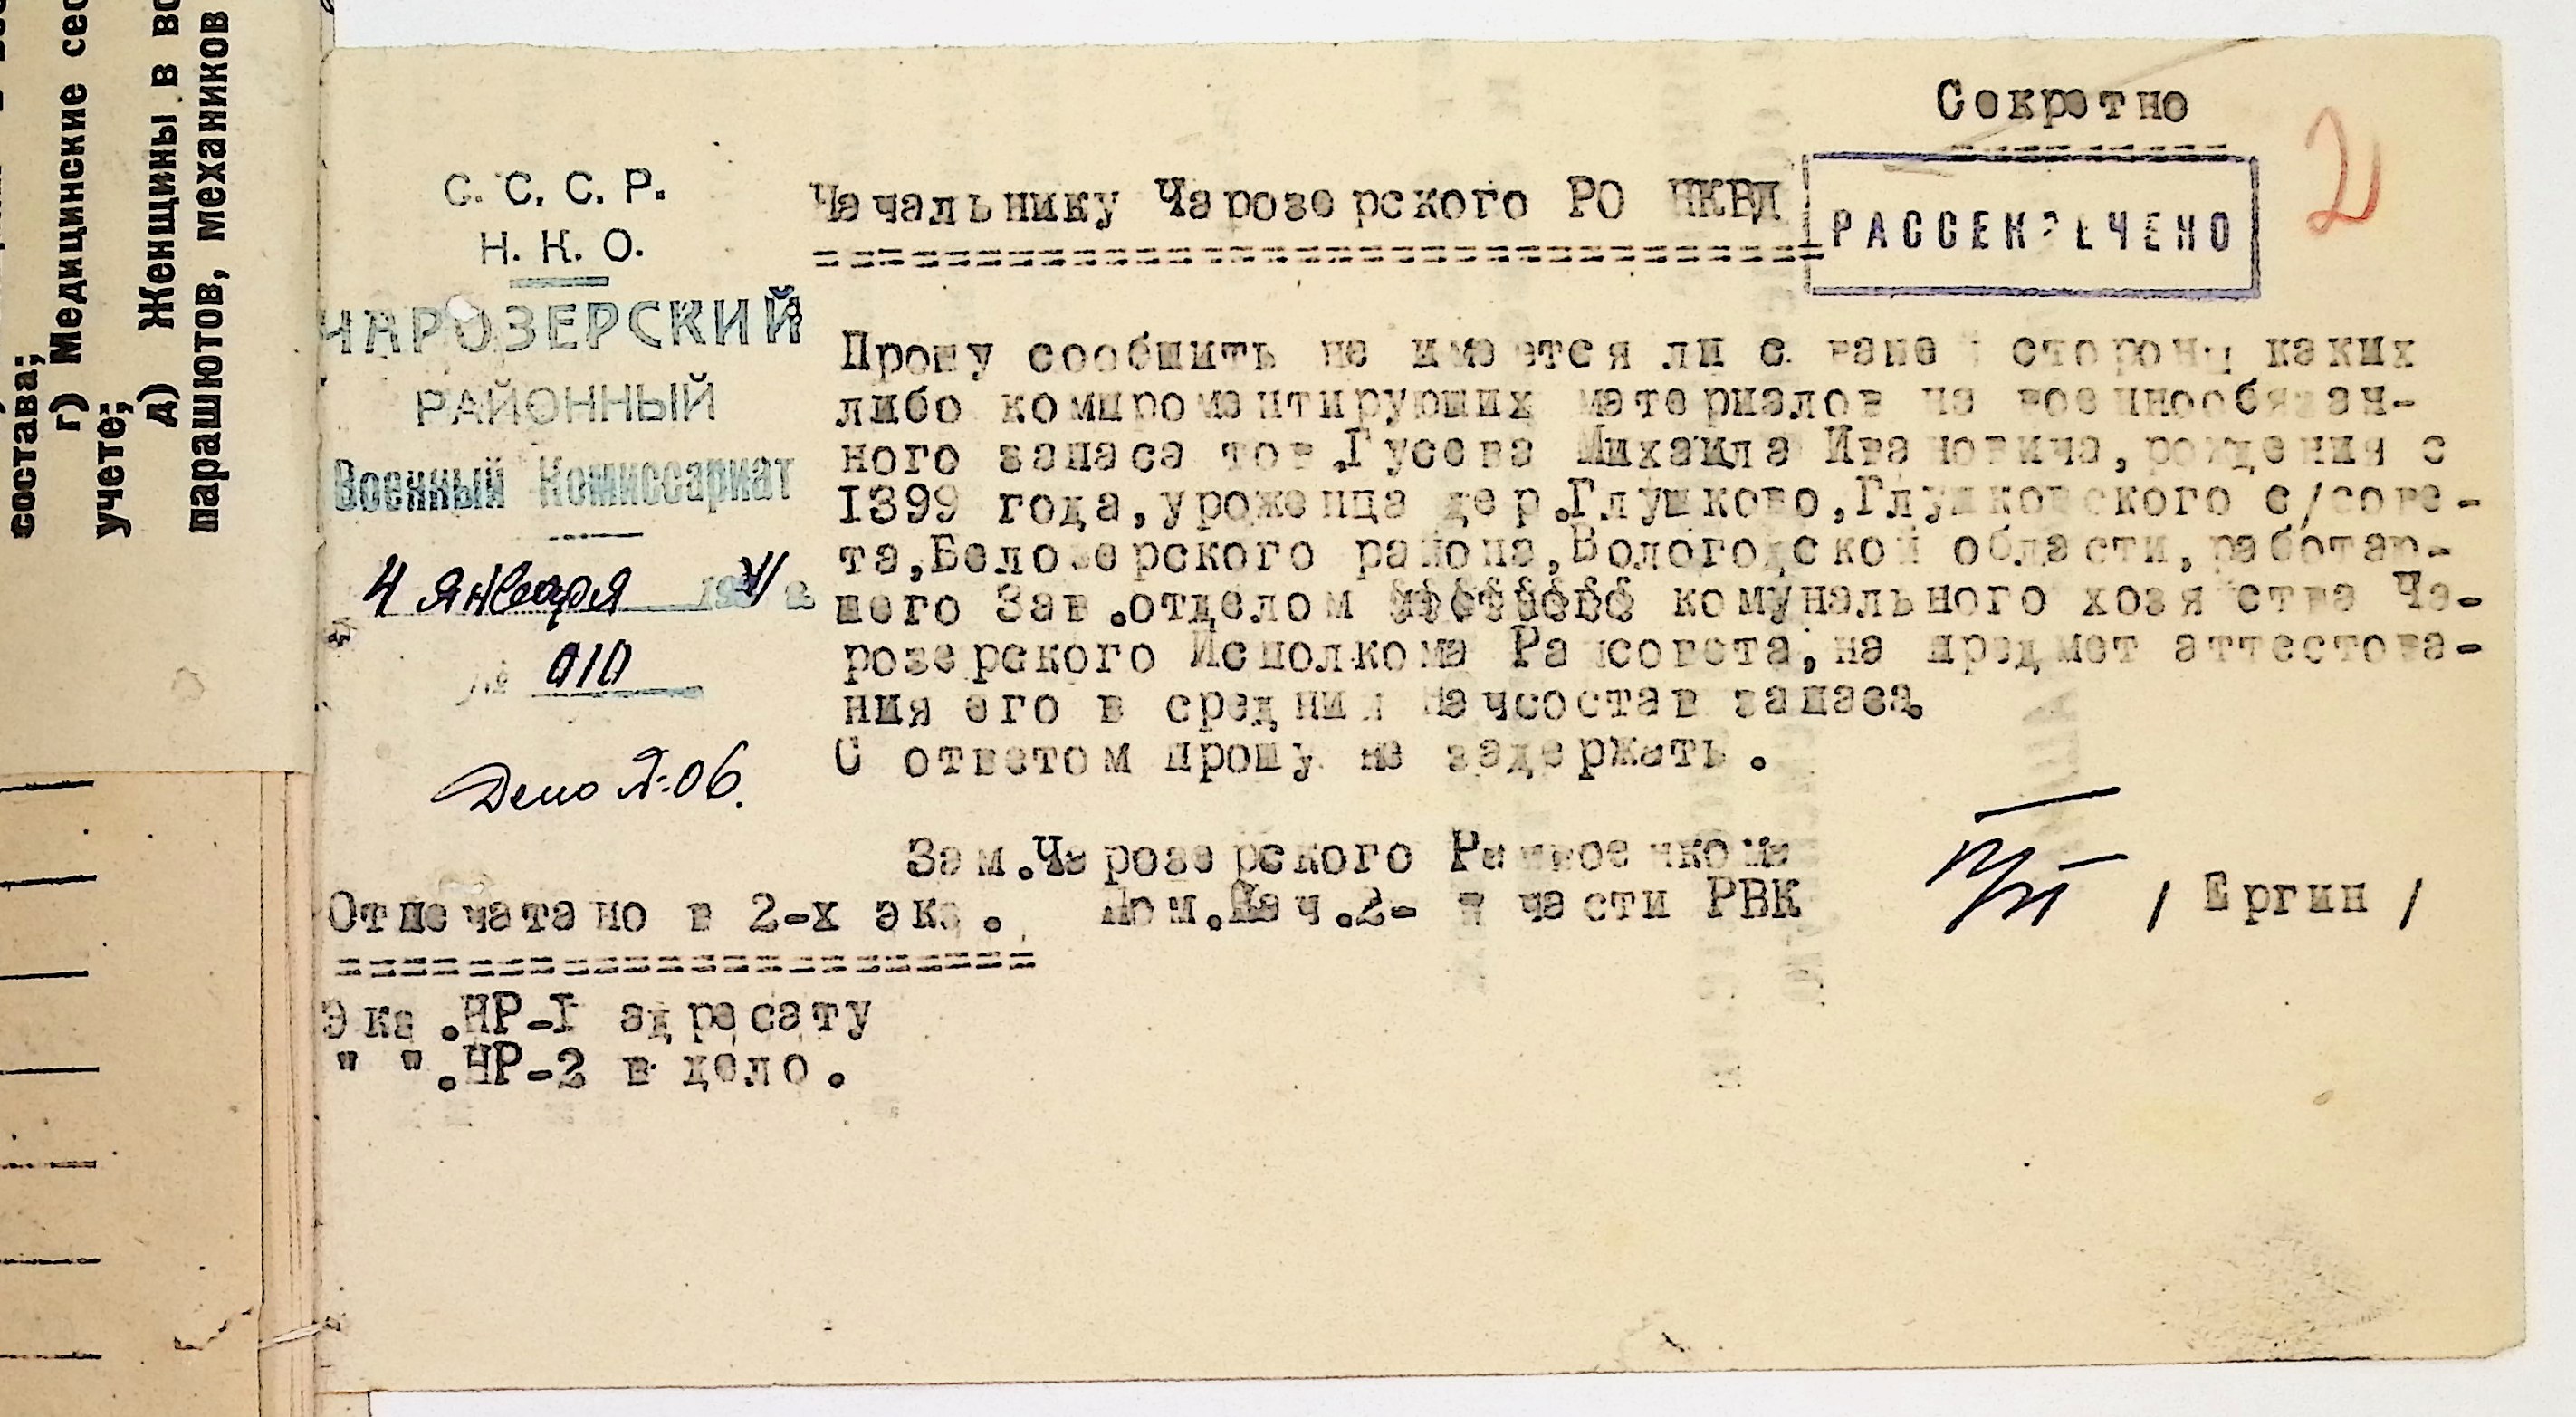 состава;
г) Медицинские сес
учете;
д) Женщины в во
парашютов, механиков
Секретно
2
С. С. С. Р.
Н. К. О.
ЧАРОЗЕРСКИЙ
РАЙОННЫЙ
Военный Комиссариат
4 января 1941 г.
№ 010
Дело № 06.
Начальнику Чарозерского РО НКВД
РАССЕКРЕЧЕНО
Прошу сообщить не имеется ли с вашей стороны каких
либо компроментирующих материалов на военнообязан-
ного запаса тов.Гусева Михаила Ивановича,рождения с
1899 года,уроженца дер.Глушково,Глушковского с/сове-
та,Белозерского района,Вологодской области,работав-
шего Зав.отделом комунального хозяйства Ча-
розерского Исполкома Райсовета,на предмет аттестова-
ния его в средний начсостав запаса.
С ответом прошу не задержать.
Зам.Чарозерского Райвоенкома
Пом.Нач.2-й части РВК / Ергин /
Отпечатано в 2-х экз.
Экз.НР-1 адресату
" ".НР-2 в дело.